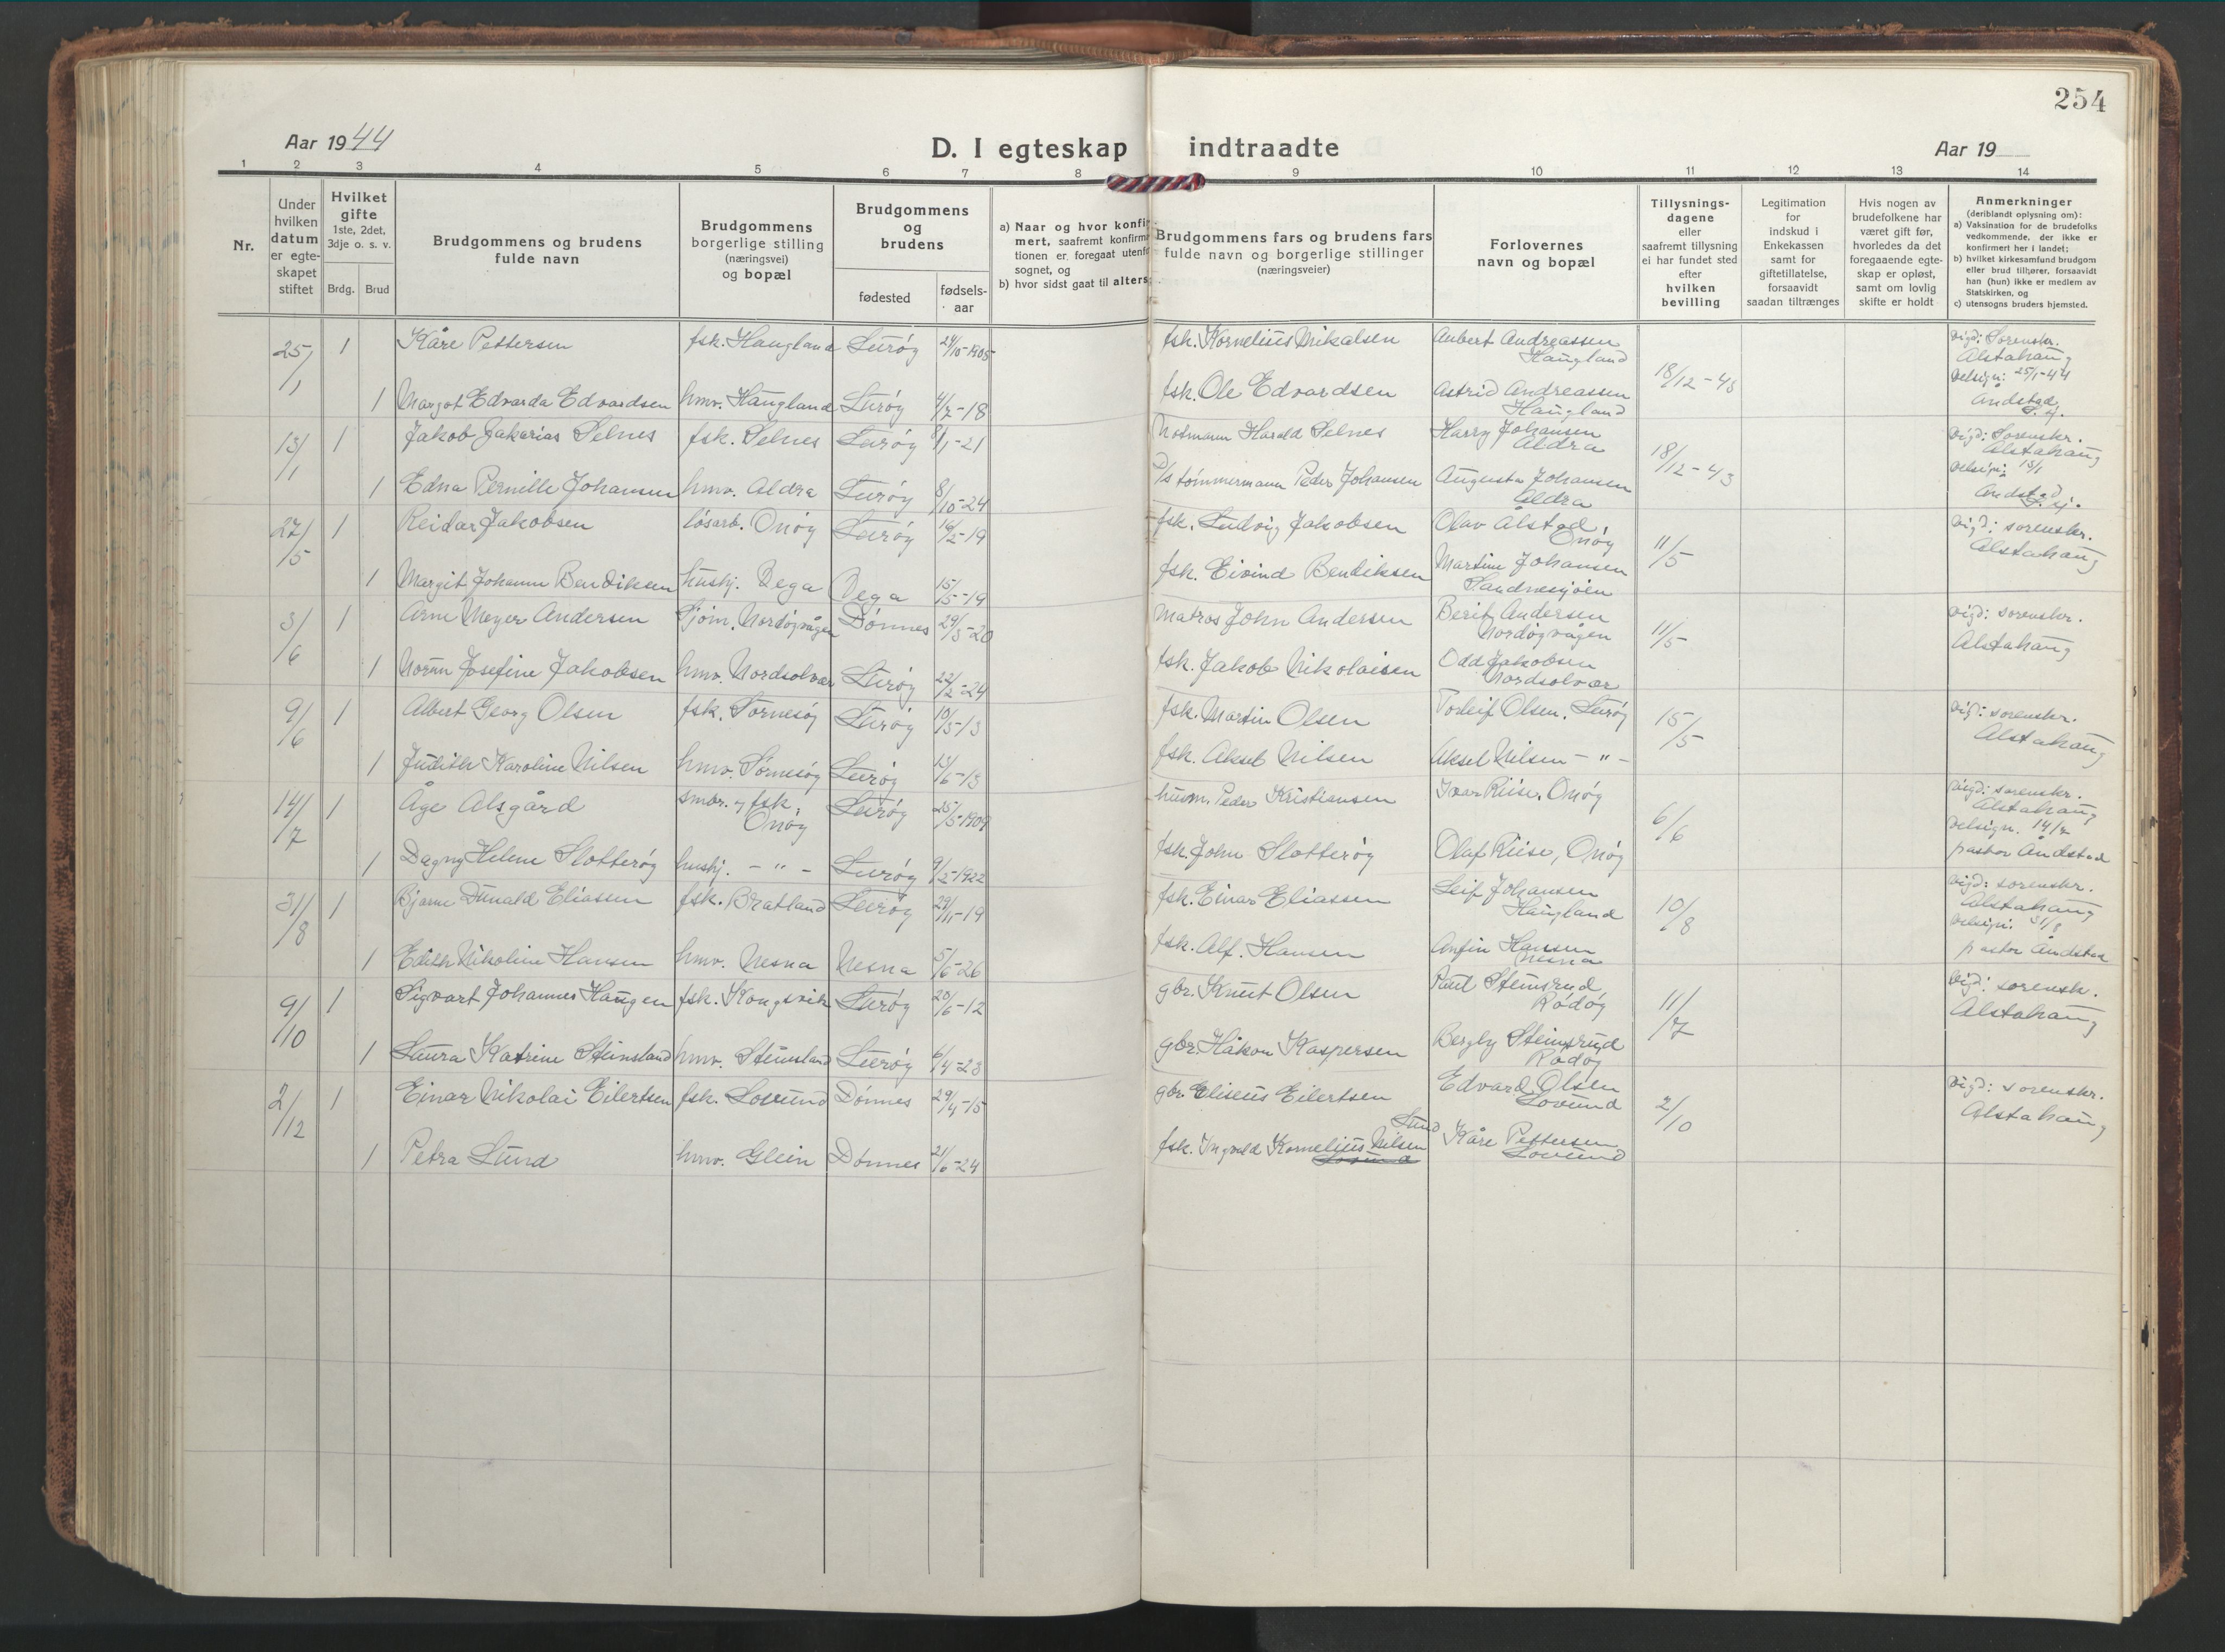 254
Aar 1944
D. I egteskap indtraadte
Aar 19
1 2 3 4 5 6 7 8 9 10 11 12 13 14
Nr.
Under
hvilken
datum
er egte-
skapet
stiftet
Hvilket
gifte
1ste, 2det,
3dje o. s. v.
Brdg. Brud
Brudgommens og brudens
fulde navn
Brudgommens
borgerlige stilling
(næringsvei)
og bopæl
Brudgommens
og
brudens
fødested
fødsels-
aar
a) Naar og hvor konfir
mert, saafremt konfirm
tionen er foregaat utenfo
sognet, og
b) hvor sidst gaat til alters
Brudgommens fars og brudens fars
fulde navn og borgerlige stillinger
(næringsveier)
Forlovernes
navn og bopæl
Tillysnings-
dagene
eller
saafremt tillysning
ei har fundet sted
efter
hvilken
bevilling
Legitimation
for
indskud i
Enkekassen
samt for
giftetillatelse,
forsaavidt
saadan tiltrænges
Hvis nogen av
brudefolkene har
været gift før,
hvorledes da det
foregaaende egte-
skap er opløst,
samt om lovlig
skifte er holdt
Anmerkninger
(deriblandt oplysning om):
a) Vaksination for de brudefolks
vedkommende, der ikke er
konfirmert her i landet;
b) hvilket kirkesamfund brudgom
eller brud tilhører, forsaavidt
han (hun) ikke er medlem av
Statskirken, og
c) utensogns bruders hjemsted.
25/1 1 Kåre Pettersen fsk. Haugland Lurøy 24/10-1905 fsk. Kornelius Nikalsen Anbert Andreassen
Haugland
18/12-43
Vigd: Sorenskr.
Alstahaug
Velsign: 25/1-44
Andstad
S. y.
1 Margot Edvarda Edvardsen hmv. Haugland Lurøy 4/7-18 fsk. Ole Edvardsen Astrid Andreassen
Haugland
13/1 1 Jakob Zakarias Selnes fsk. Selnes Lurøy 8/1-21 Notmann Harald Selnes Harry Johansen
Aldra
18/12-43
Vigd: Sorenskr.
Alstahaug
Velsign: 13/1
Andstad
1 Edna Pernille Johansen hmv. Aldra Lurøy 8/10-24 D/s tømmermann Peder Johansen Augusta Johansen
Aldra
27/5 1 Reidar Jakobsen løsarb. Onøy Lurøy 16/2-19 fsk. Ludvig Jakobsen Olav Ålstad,
Onøy
11/5
Vigd: sorenskr.
Alstahaug
1 Margit Johanne Bendiksen hushj. Vega Vega 15/5-19 fsk. Eivind Bendiksen Martine Johansen
Sandnesjøen
3/6 1 Arne Meyer Andersen Sjøm. Nordøyvågen Dønnes 29/3-20 Matros John Andersen Berit Andersen
Nordøyvågen
11/5
Vigd: sorenskr.
Alstahaug
1 Norun Josefine Jakobsen hmv. Nordsolvær Lurøy 22/2-24 fsk. Jakob Nikolaisen Odd Jakobsen
Nordsolvær
9/6 1 Albert Georg Olsen fsk. Sørnesøy Lurøy 10/5-13 fsk. Martin Olsen Torleif Olsen, Lurøy
15/5
Vigd: sorenskr.
Alstahaug
1 Judith Karoline Nilsen hmv. Sørnesøy Lurøy 13/6-13 fsk. Aksel Nilsen Aksel Nilsen - " -
14/7 1 Åge Alsgård småbr. og fsk.
Onøy
Lurøy 25/5-1909 husm. Peder Kristiansen Ivar Riise, Onøy
6/6
Vigd: sorenskr.
Alstahaug
Velsign. 14/7
pastor Åndstad
1 Dagny Helene Slotterøy hushj. - " - Lurøy 9/2-1922 fsk. John Slotterøy Olaf Riise, Onøy
31/8 1 Bjarne Dunald Eliassen fsk. Bratland Lurøy 29/11-19 fsk. Einar Eliassen Leif Johansen
Haugland
10/8
Vigd: sorenskr.
Alstahaug
Velsign: 31/8
pastor Åndstad
1 Edith Nikoline Hansen hmv. Nesna Nesna 5/6-26 fsk. Alf. Hansen Anfin Hansen
Nesna
9/10 1 Sigvart Johannes Haugen fsk. Kongsvik Lurøy 20/6-12 gbr. Knut Olsen Raul Steinsrud
Rødøy
11/7
Vigd: sorenskr.
Alstahaug
1 Laura Katrine Steinsland hmv. Steinsland Lurøy 6/4-23 gbr. Håkon Kaspersen Bergly Steinsrud
Rødøy
2/12 1 Einar Nikolai Eilertsen fsk. Lovund Dønnes 29/4-15 gbr. Eliseus Eilertsen Edvard Olsen
Lovund
2/10
Vigd: sorenskr.
Alstahaug
Lund
1 Petra Lund hmv. Glein Dønnes 21/6-24 fsk. Ingvald Kornelius Nilsen Kåre Pettersen
Lovund Lovund